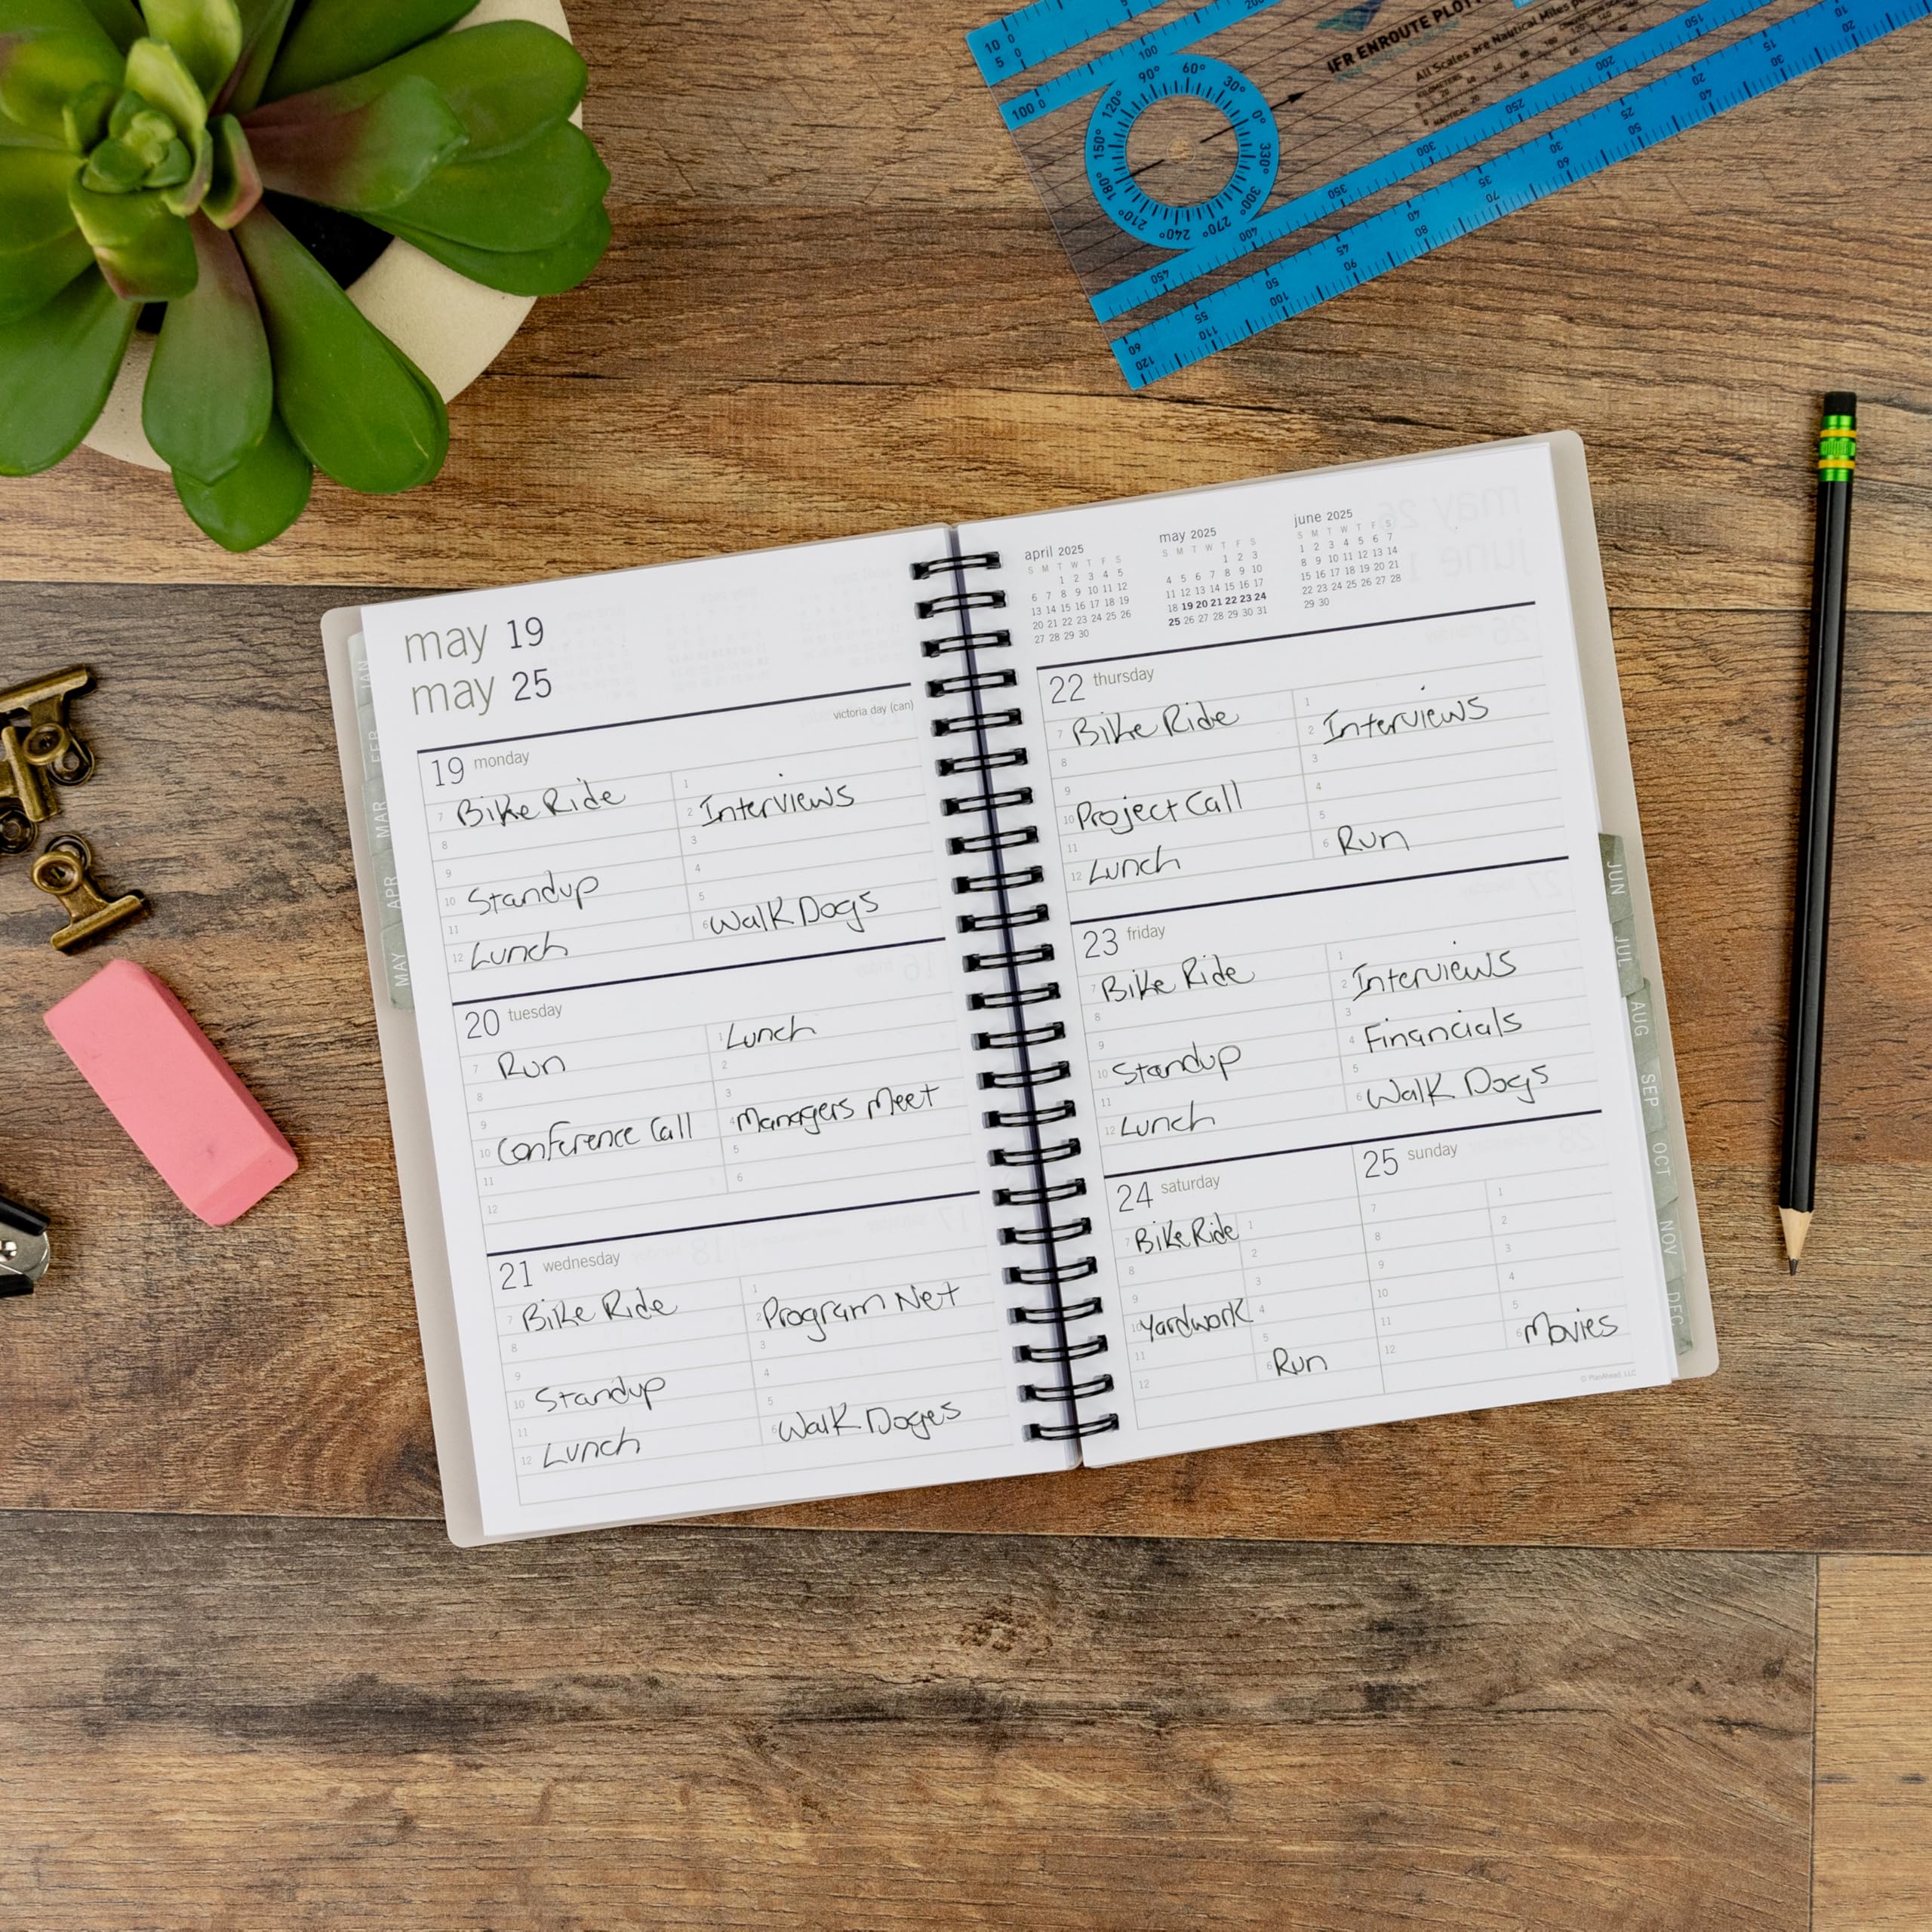 may 19
may 25
victoria day (can)
19 monday
7 Bike Ride
8
9
10 Standup
11
12 Lunch
1
2 Interviews
3
4
5
6 Walk Dogs
20 tuesday
7 Run
8
9
10 Conference Call
11
12
1 Lunch
2
3
4 Managers Meet
5
6
21 wednesday
7 Bike Ride
8
9
10 Standup
11
12 Lunch
1
2 Program Net
3
4
5
6 Walk Doges
april 2025
S M T W T F S
1 2 3 4 5
6 7 8 9 10 11 12
13 14 15 16 17 18 19
20 21 22 23 24 25 26
27 28 29 30
may 2025
S M T W T F S
1 2 3
4 5 6 7 8 9 10
11 12 13 14 15 16 17
18 19 20 21 22 23 24
25 26 27 28 29 30 31
june 2025
S M T W T F S
1 2 3 4 5 6 7
8 9 10 11 12 13 14
15 16 17 18 19 20 21
22 23 24 25 26 27 28
29 30
22 thursday
7 Bike Ride
8
9
10 Project Call
11
12 Lunch
1
2 Interviews
3
4
5
6 Run
23 friday
7 Bike Ride
8
9
10 Standup
11
12 Lunch
1
2 Interviews
3
4 Financials
5
6 Walk Dogs
24 saturday
7 Bike Ride
8
9
10 Yardwork
11
12
1
2
3
4
5
6 Run
25 sunday
7
8
9
10
11
12
1
2
3
4
5
6 Movies
© PlanAhead, LLC
JAN
FEB
MAR
APR
MAY
JUN
JUL
AUG
SEP
OCT
NOV
DEC
IFR ENROUTE PLOTT
All Scales are Nautical Miles
KILOMETERS
NAUTICAL
90° 60° 30° 0° 330° 300° 270° 240° 210° 180° 150° 120°
450 400 350 300 250 200 150
60 55 50 45 40 35 30 25 20 15 10
120 110 100 90 80 70 60 50 40 30 20